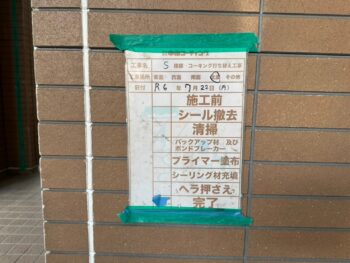 工事名 S 様邸・コーキング打ち替え工事
工事場所 東面 西面 南面 北面 その他
日付 R6年7月22日(月)
施工前
シール撤去
清掃
バックアップ材 及び
ボンドブレーカー
プライマー塗布
シーリング材充填
ヘラ押さえ
完了